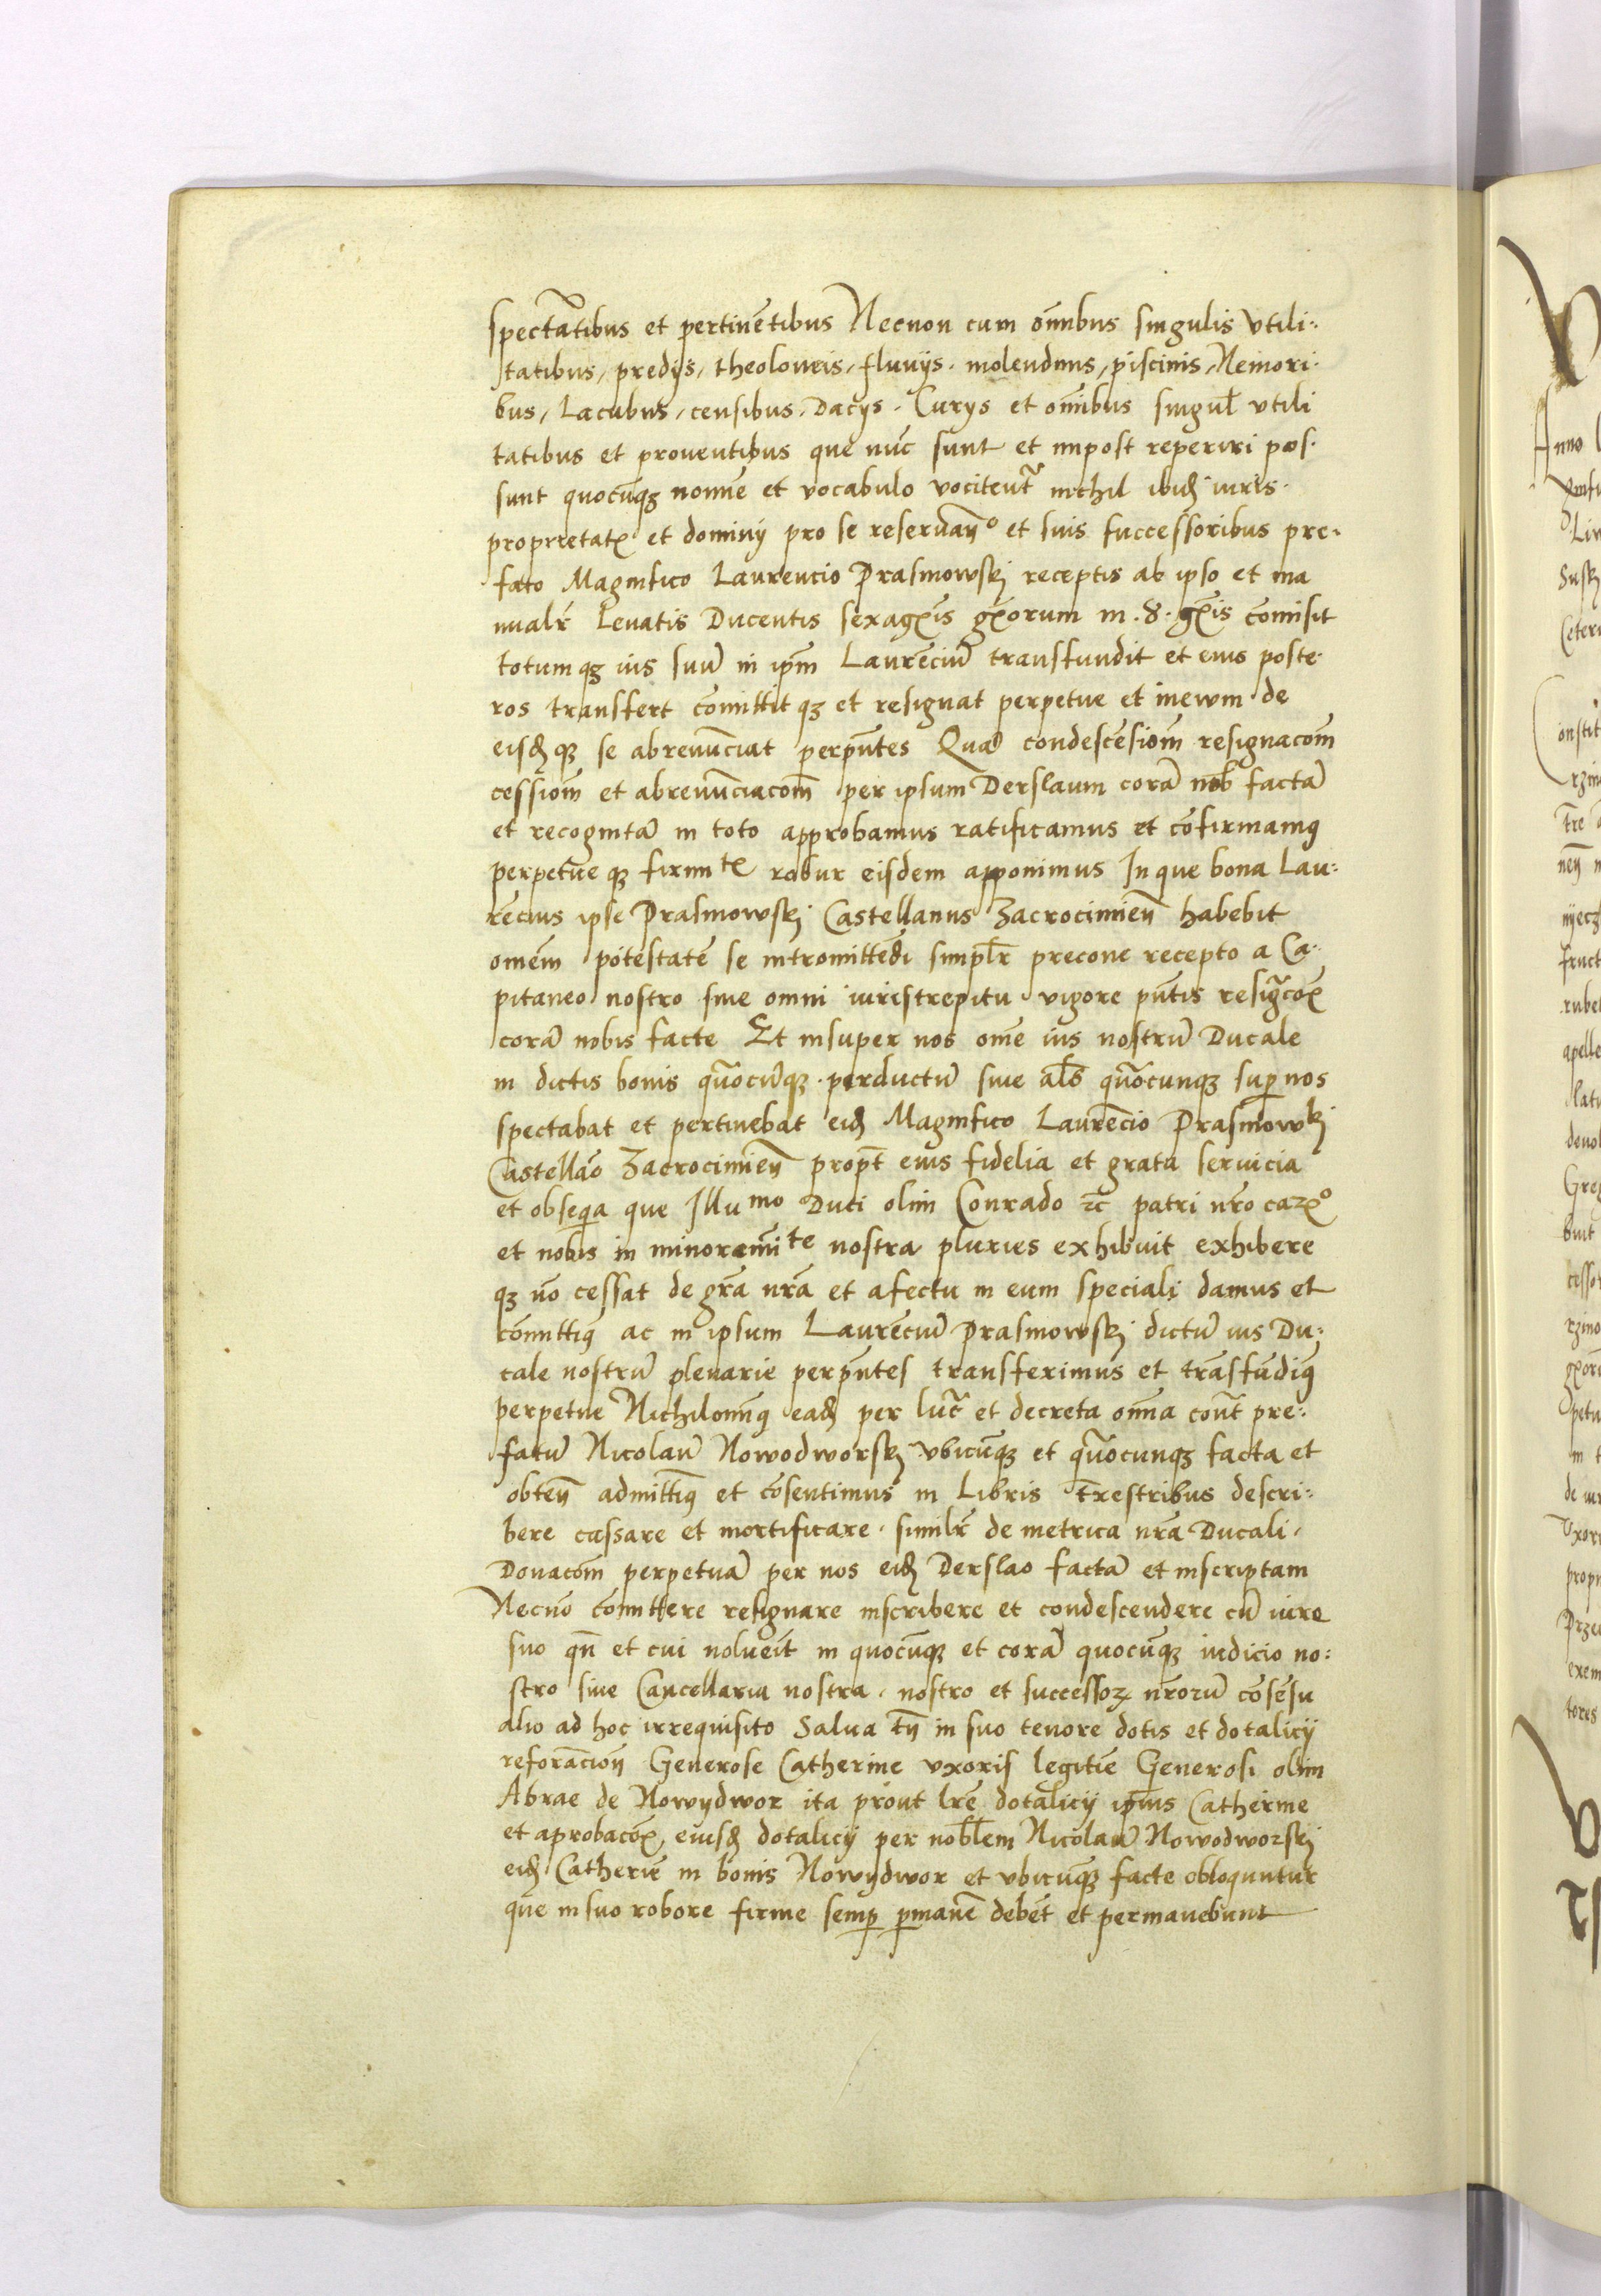 spectātibus et pertinētibus Necnon cum om̄ibus singulis vtili:
tatibus, predijs, theoloneis, fluvijs. molendinis, piscinis, Nemori.
bus, Lacubus, censibus. Dacijs. Curijs et om̄ibus singul̄ vtili
tatibus et proventibus que nūc sunt et impost reperiri pos.
sunt quocūqȝ nomīe et vocabulo vocitent̄ nichil ibid̄ iuris.
proprietatꝭ et dominij pro se reservan̄º et suis successoribus pre.
fato Magnifico Laurencio Prasmowskj receptis ab ipso et ma
nualr̄ Levatis Ducentis sexagꝭis gꝭorum in . 8 . gꝭis cōmisit
totumqȝ ius suū in ip̄m Laurēciū transfundit et eius poste.
ros transfert cōmittitqȝ et resignat perpetue et in ewm . de
eisd̄qȝ se abrenūciat perpn̄tes Quā condescēsiom̄ resignacom̄
cessiom̄ et abrenūciacom̄ per ipsum Derslaum corā nob̄ factā
et recognitā in toto approbamus ratificamus et cōfirmamꝰ
perpetueqȝ firmite robur eisdem apponimus In que bona Lau:
rēcius ipse Prasmowskj Castellanus Zacrocimien̄ habebit
omēm potestatē se intromittēdi simplr̄ precone recepto a Ca:
pitaneo nostro sine omni iuristrepitu vigore pn̄tis resigͣcoꝭ
corā nobis facte Et insuper nos om̄e ius nostrū Ducale
in dictis bonis qͣocūqȝ . perductū sive al̄s qͣocunqȝ sup̱ nos
spectabat et pertinebat eid̄ Magnifico Laurēcio Prasmowskj
Castellāo Zacrocimien̄ propt̄ eius fidelia et grata servicia
et obseqia que Illumo Duci olim Conrado ⁊c̄ patri nr̄o carꝭº
et nobis in minorēnite nostra pluries exhibuit exhibere
qȝ nō cessat de gr̄a nr̄a et afectu in eum speciali damus et
cōmittimꝰ ac in ipsum Laurēciū Prasmowskj dictū ius Du:
cale nostrū plenarie perpn̄tes transferimus et trāsfūdimꝰ
perpetue Nichilominꝰ ead̄ per luc̄ et decreta om̄ia cont̄ pre:
fatū Nicolaū Nowodworskj vbicūqȝ et qͣocunqȝ facta et
obten̄ admittimꝰ et cōsentimus in Libris t̄restribus descri:
bere cassare et mortificare . similr̄ de metrica nr̄a Ducali.
Donacom̄ perpetuā per nos eid̄ Derslao factā et inscriptam
Necnō cōmittere resignare inscribere et condescendere cū iure
suo qn̄ et cui voluerit in quocūqȝ et corā quocūqȝ iudicio no:
stro sive Cancellaria nostra . nostro et successoꝝ nr̄orū cōsēsu
alio ad hoc irrequisito Salua tn̄ in suo tenore dotis et dotalicij
reforācion̄ Generose Catherine vxoris legitīe Generosi olim
Abrae de Nowydwor ita prout lr̄e dotalicij ip̄ius Catherine
et aprobacoꝭ, eiusd̄ dotalicij per nobl̄em Nicolaū Nowodworskj
eid̄ Catherīe in bonis Nowydwor et vbicūqȝ facte obloquntur
que in suo robore firme semp̱ p̱manē debēt et permanebunt